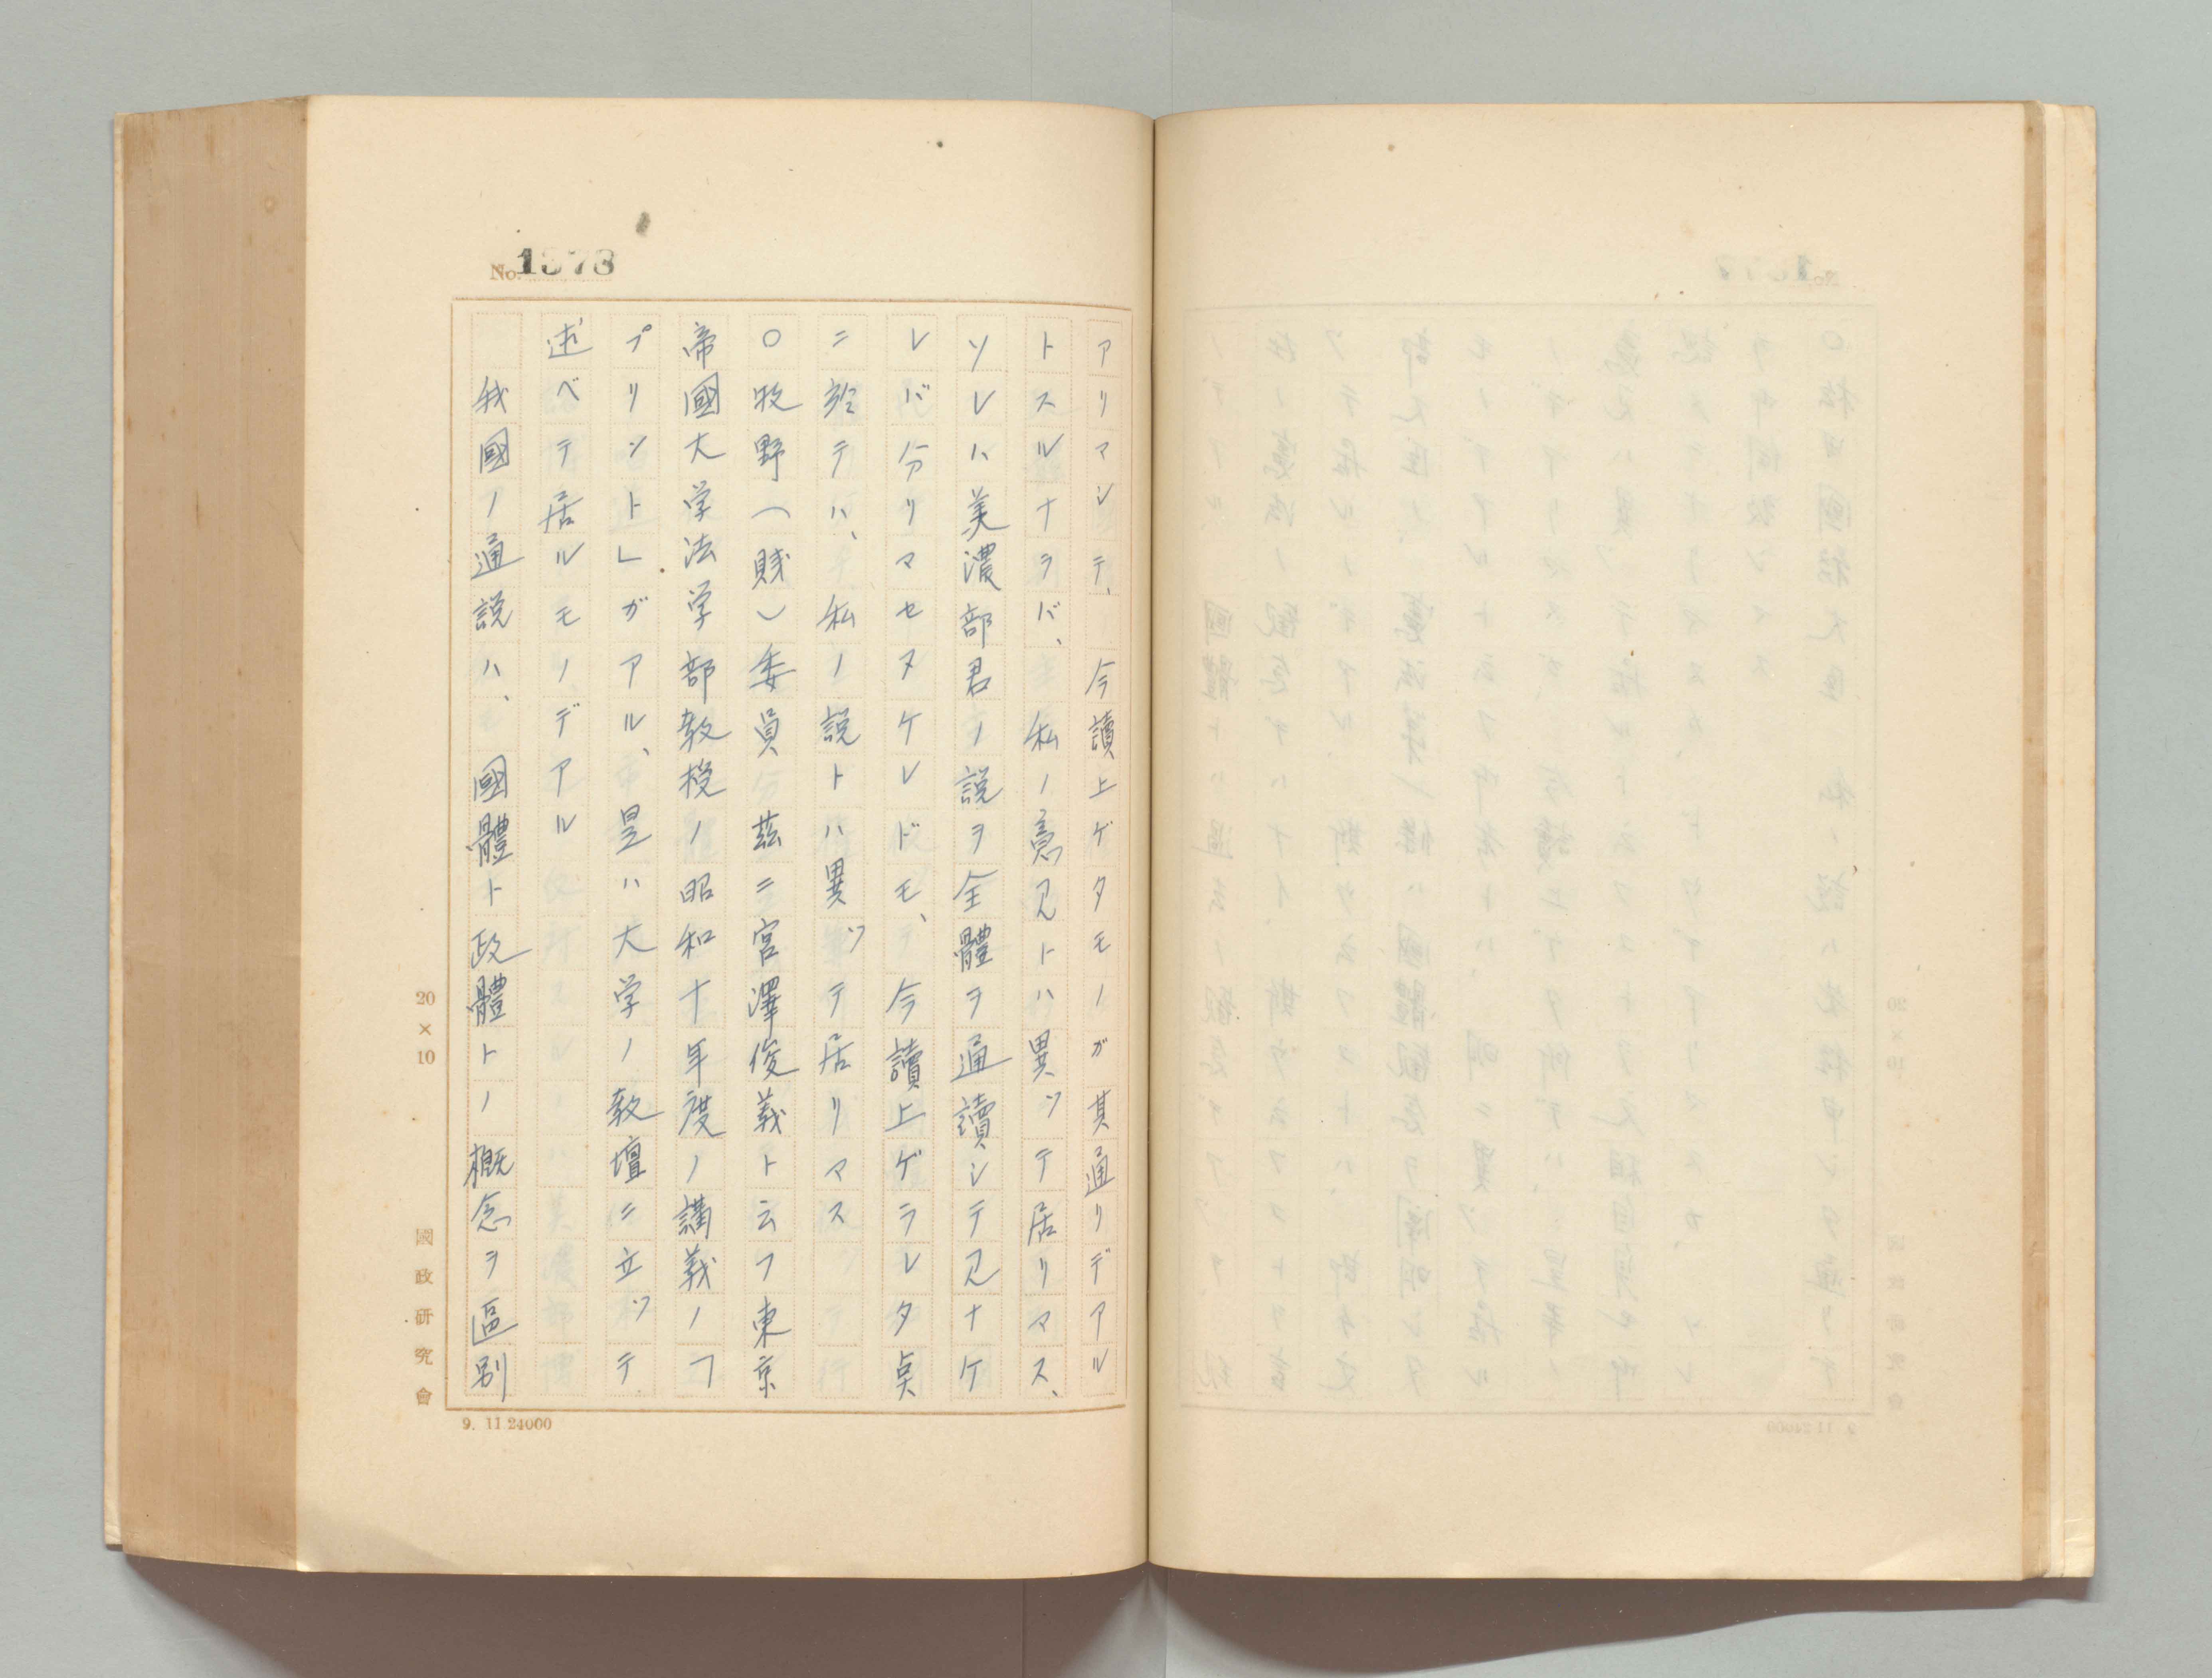 No. 1373
アリマシテ、今讀上ゲタモノガ其通リデアル
トスルナラバ、私ノ意見トハ異ツテ居リマス、
ソレハ美濃部君ノ說ヲ全體ヲ通讀シテ見ナケ
レバ分リマセヌケレドモ、今讀上ゲラレタ点
ニ於テハ、私ノ説トハ異ツテ居リマス
〇牧野(賤)委員 茲ニ宮澤俊義ト云フ東京
帝國大学法学部教授ノ昭和十年度ノ講義ノ「
プリント」ガアル、是ハ大学ノ教壇ニ立ツテ
述ベテ居ルモノデアル
我國ノ通説ハ、國體ト政體トノ概念ヲ區別
20×10
國政研究會
9. 11 24000